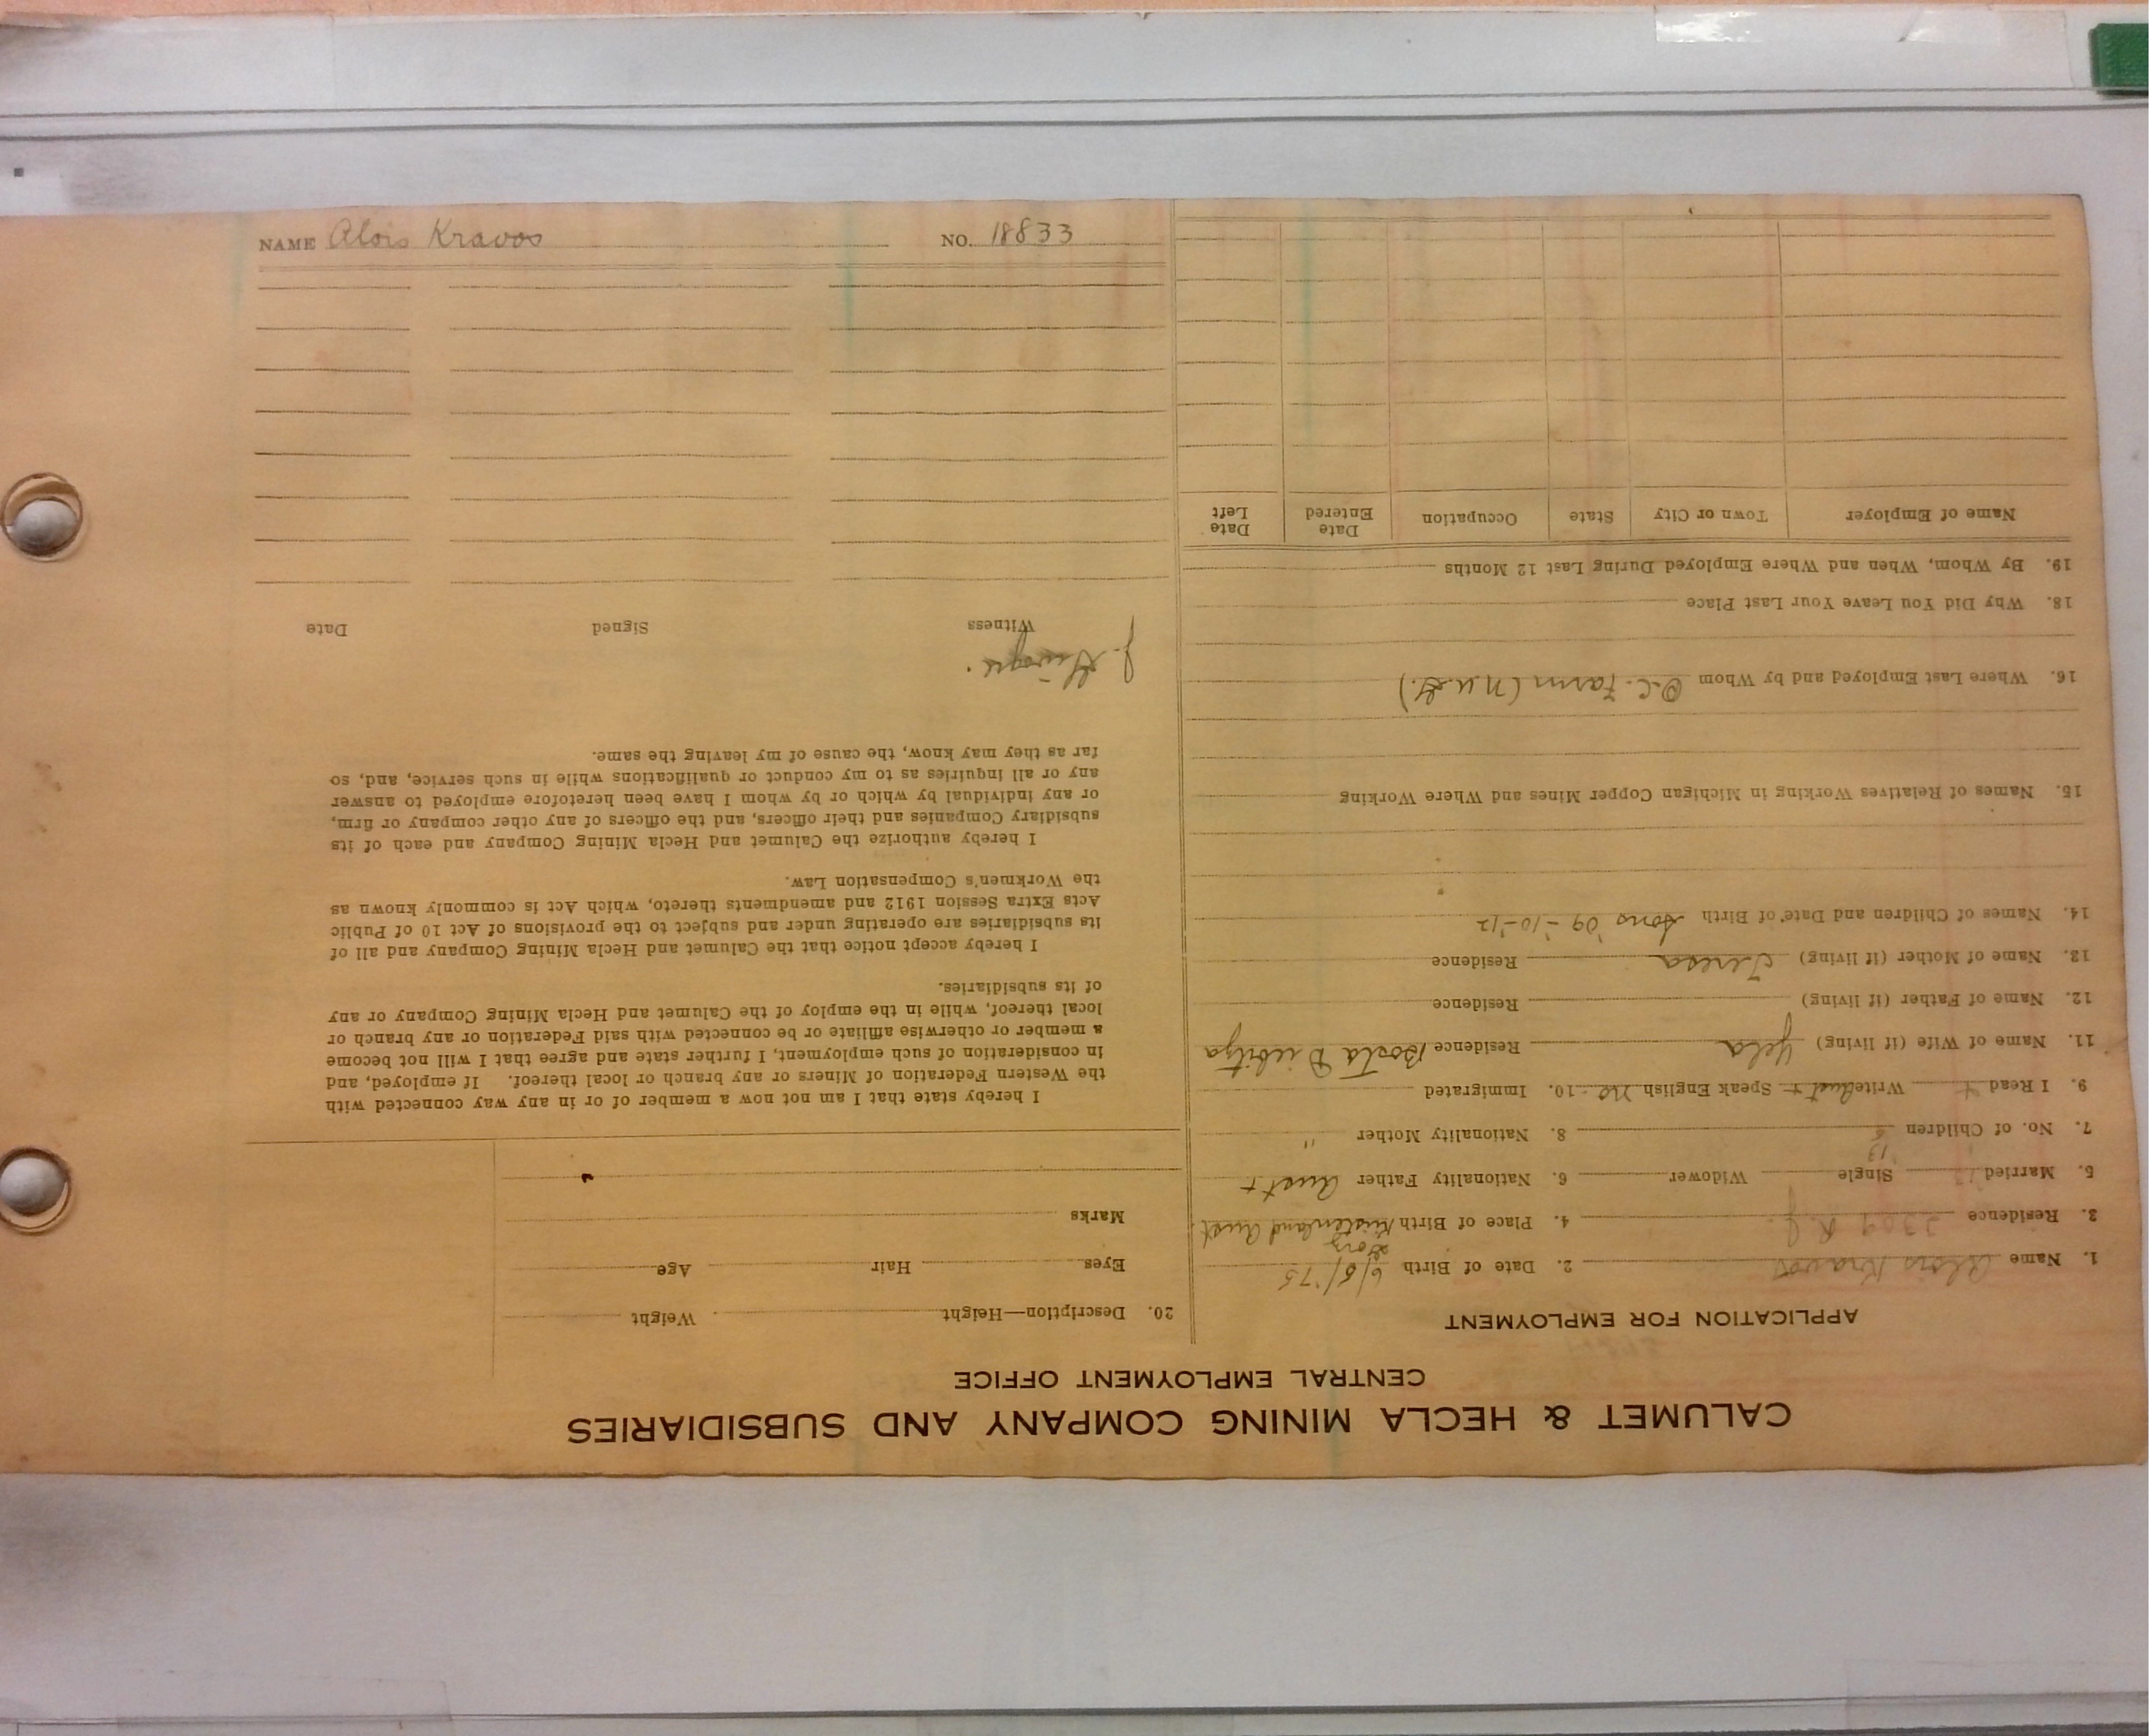 CALUMET & HECLA MINING COMPANY AND SUBSIDIARIES
CENTRAL EMPLOYMENT OFFICE
APPLICATION FOR EMPLOYMENT
1. Name Alois Kravos 2. Date of Birth 6/5/'75
3. Residence 2309 4. Place of Birth Küstenland Aust
5. Married Single Widower 6. Nationality Father Aust
7. No. of Children 8. Nationality Mother "
9. I Read Write Aust Speak English no 10. Immigrated 13
11. Name of Wife (if living) Yela Residence
12. Name of Father (if living) Residence
13. Name of Mother (if living) Teresa Residence
14. Names of Children and Date of Birth Sons '09 - '10 - '12
15. Names of Relatives Working in Michigan Copper Mines and Where Working
16. Where Last Employed and by Whom Farm
18. Why Did You Leave Your Last Place
19. By Whom, When and Where Employed During Last 12 Months
Name of Employer Town or City State Occupation Date Entered Date Left
20. Description—Height Weight
Eyes Hair Age
Marks
I hereby state that I am not now a member of or in any way connected with
the Western Federation of Miners or any branch or local thereof. If employed, and
in consideration of such employment, I further state and agree that I will not become
a member or otherwise affiliate or be connected with said Federation or any branch or
local thereof, while in the employ of the Calumet and Hecla Mining Company or any
of its subsidiaries.
I hereby accept notice that the Calumet and Hecla Mining Company and all of
its subsidiaries are operating under and subject to the provisions of Act 10 of Public
Acts Extra Session 1912 and amendments thereto, which Act is commonly known as
the Workmen's Compensation Law.
I hereby authorize the Calumet and Hecla Mining Company and each of its
subsidiary Companies and their officers, and the officers of any other company or firm,
or any individual by which or by whom I have been heretofore employed to answer
any or all inquiries as to my conduct or qualifications while in such service, and, so
far as they may know, the cause of my leaving the same.
Witness Signed Date
NAME Alois Kravos NO. 18833